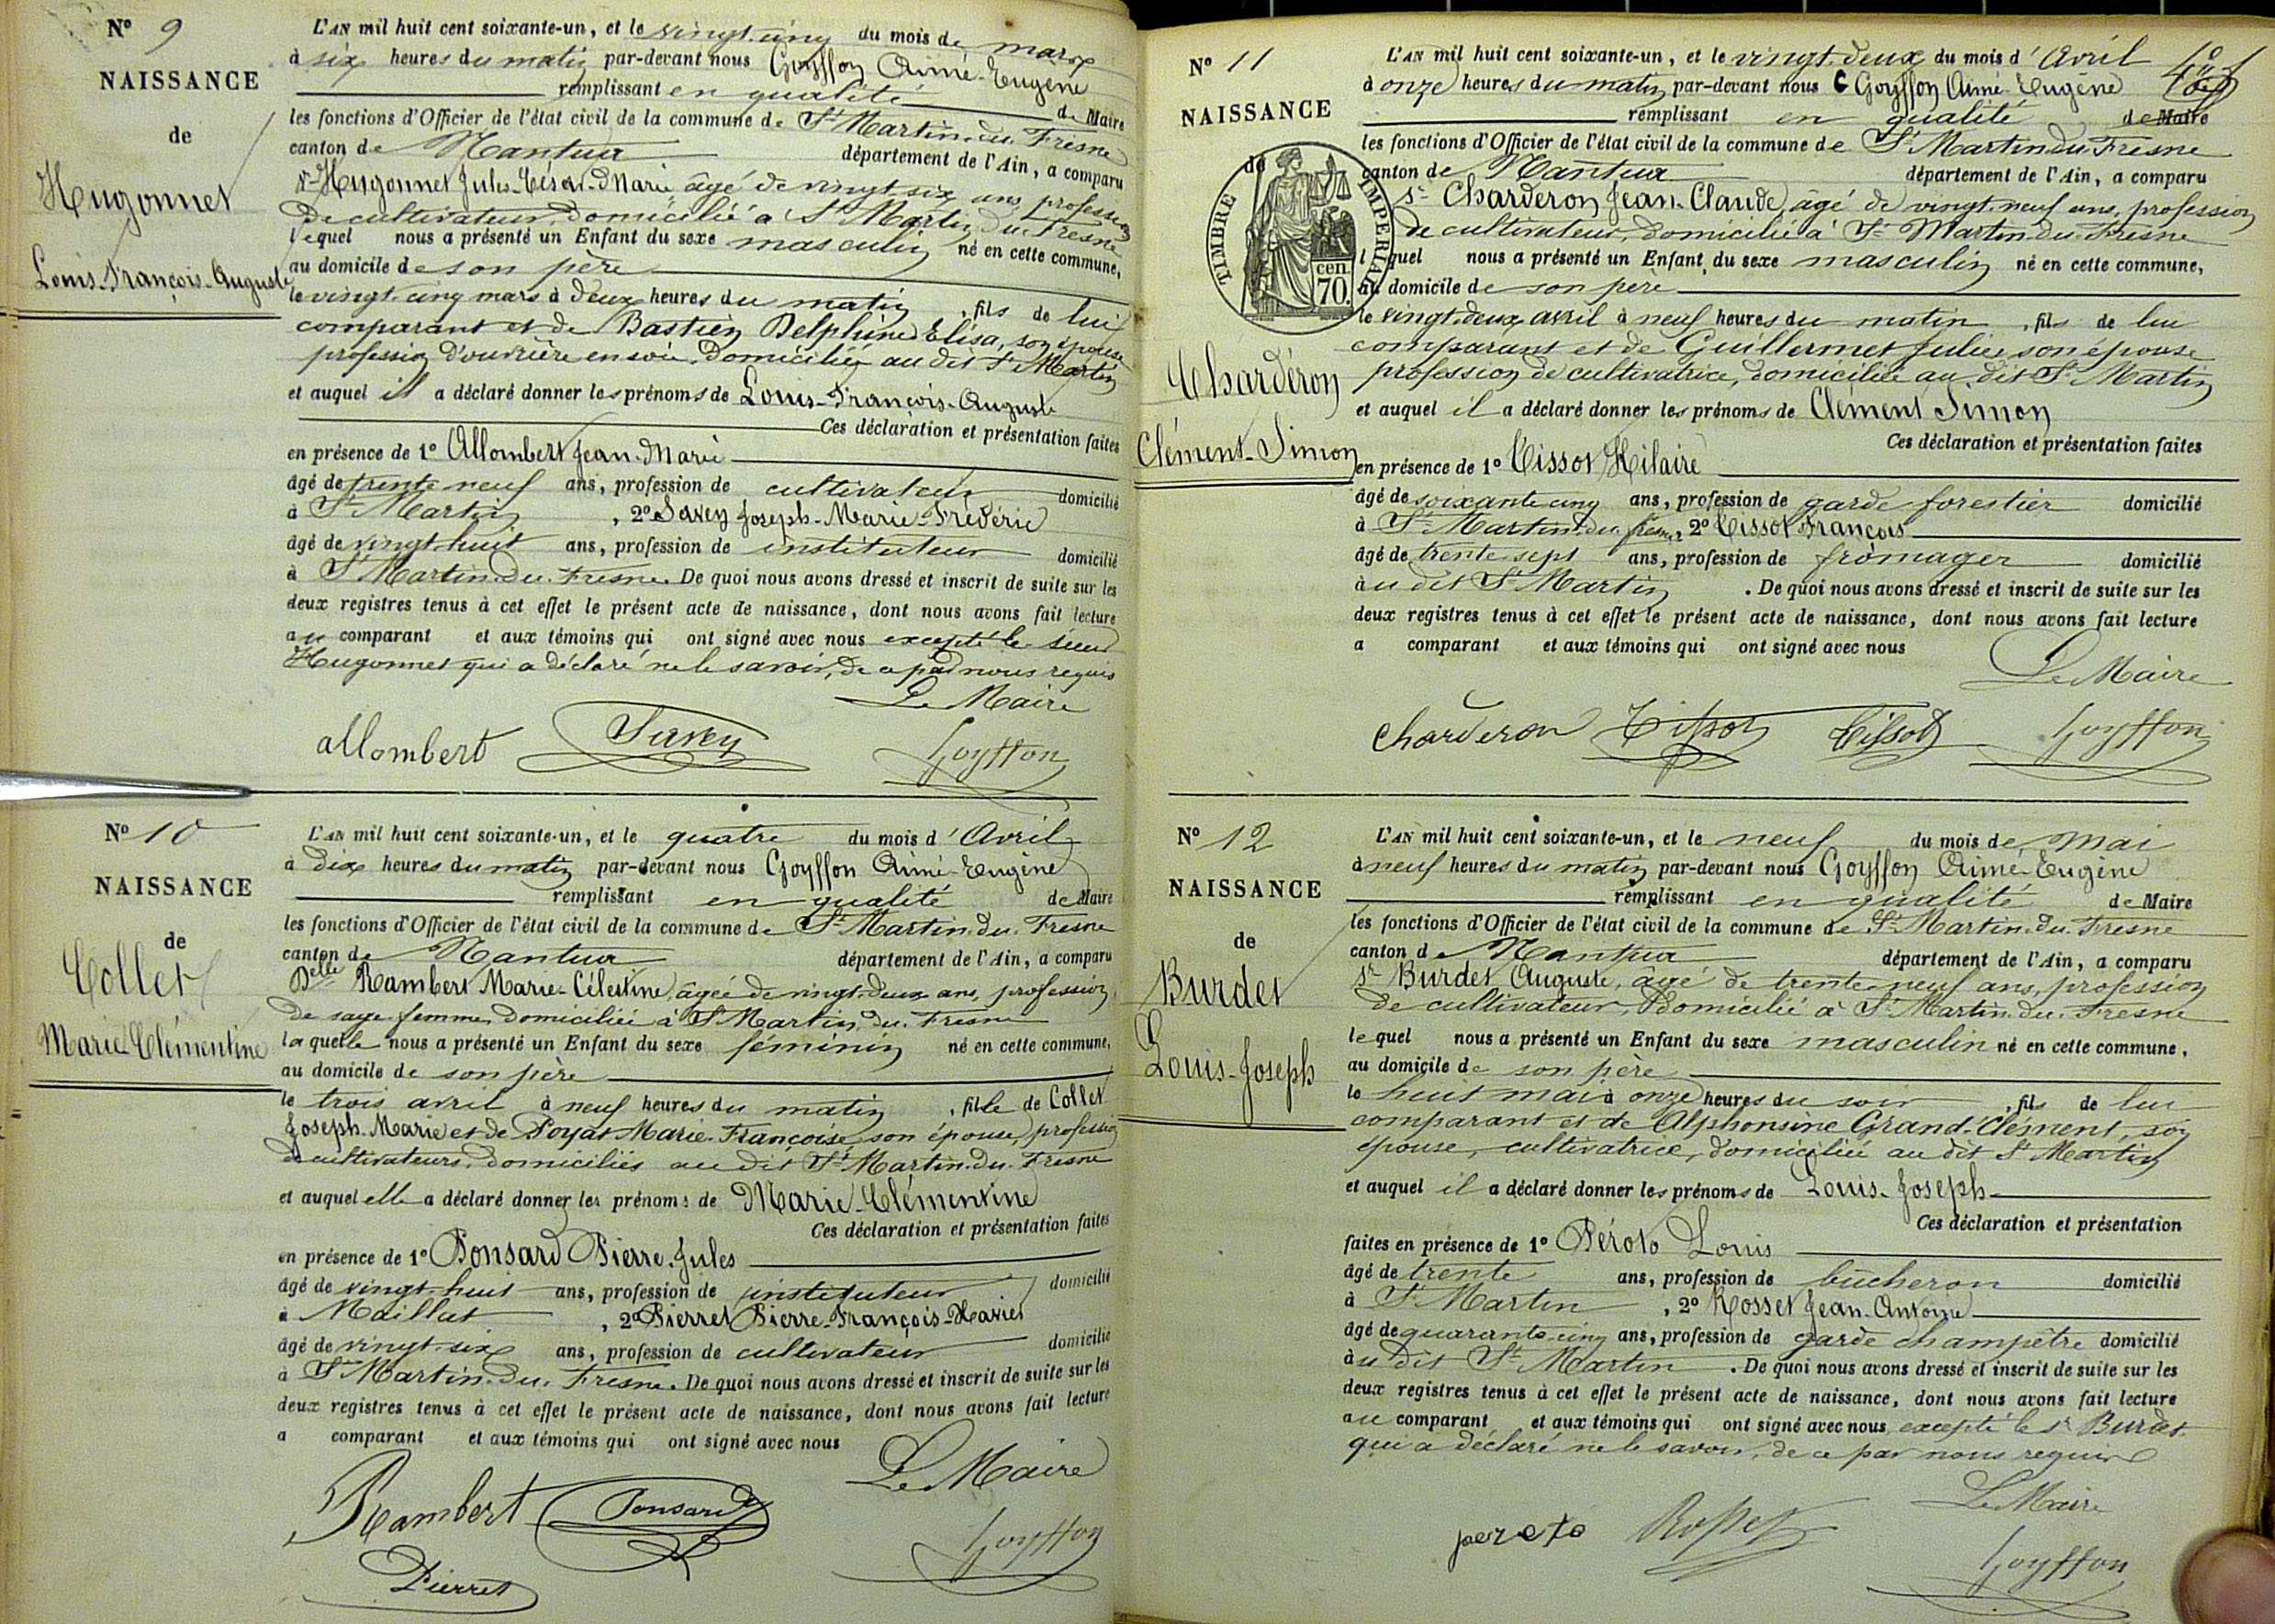 N° 9
NAISSANCE
de
Hugonnet
Louis-François-Auguste
L'AN mil huit cent soixante-un, et le vingt-cinq du mois de mars
à six heures du matin par-devant nous Goyffon Aimé-Eugène
remplissant en qualité de Maire
les fonctions d'Officier de l'état civil de la commune de St Martin-du-Fresne
canton de Nantua département de l'Ain, a comparu
Sr Hugonnet Jules-César-Marie âgé de vingt six ans, profession
de cultivateur, domicilié à St Martin du Fresne
lequel nous a présenté un Enfant du sexe masculin né en cette commune,
au domicile de son père
le vingt-cinq mars à deux heures du matin, fils de lui
comparant et de Bastien Delphine Elisa, son épouse
profession d'ouvrière en soie, domiciliée au dit St Martin
et auquel il a déclaré donner les prénoms de Louis-François-Auguste
Ces déclaration et présentation faites
en présence de 1° Allombert Jean-Marie
âgé de trente neuf ans, profession de cultivateur domicilié
à St Martin, 2° Savey Joseph-Marie-Frédéric
âgé de vingt-huit ans, profession de instituteur domicilié
à St Martin-du-Fresne. De quoi nous avons dressé et inscrit de suite sur les
deux registres tenus à cet effet le présent acte de naissance, dont nous avons fait lecture
au comparant et aux témoins qui ont signé avec nous excepté le sieur
Hugonnet qui a déclaré ne le savoir, de ce par nous requis
Le Maire
allombert Savey Goyffon
N° 10
NAISSANCE
de
Collet
Marie-Clémentine
L'AN mil huit cent soixante-un, et le quatre du mois d'Avril
à dix heures du matin par-devant nous Goyffon Aimé-Eugène
remplissant en qualité de Maire
les fonctions d'Officier de l'état civil de la commune de St Martin-du-Fresne
canton de Nantua département de l'Ain, a comparu
Delle Rambert Marie-Célestine, âgée de vingt-deux ans, profession
de sage-femme, domiciliée à St Martin-du-Fresne
laquelle nous a présenté un Enfant du sexe féminin né en cette commune,
au domicile de son père
le trois avril à neuf heures du matin, fille de Collet
Joseph-Marie et de Poyat Marie-Françoise son épouse, profession
de cultivateurs, domiciliés au dit St Martin-du-Fresne
et auquel elle a déclaré donner les prénoms de Marie-Clémentine
Ces déclaration et présentation faites
en présence de 1° Ponsard Pierre-Jules
âgé de vingt-huit ans, profession de instituteur domicilié
à Maillat, 2° Pierret Pierre-François-Xavier
âgé de vingt-six ans, profession de cultivateur domicilié
à St Martin-du-Fresne. De quoi nous avons dressé et inscrit de suite sur les
deux registres tenus à cet effet le présent acte de naissance, dont nous avons fait lecture
a comparant et aux témoins qui ont signé avec nous
Le Maire
Rambert Ponsard Goyffon
Pierret
N° 11
NAISSANCE
de
TIMBRE IMPERIAL
70 cen.
Charderon
Clément-Simon
L'AN mil huit cent soixante-un, et le vingt-deux du mois d'Avril
à onze heures du matin par-devant nous Goyffon Aimé-Eugène
remplissant en qualité de Maire
les fonctions d'Officier de l'état civil de la commune de St Martin du Fresne
canton de Nantua département de l'Ain, a comparu
Sr Charderon Jean-Claude, âgé de vingt-neuf ans, profession
de cultivateur, domicilié à St Martin-du-Fresne
l quel nous a présenté un Enfant du sexe masculin né en cette commune,
au domicile de son père
le vingt-deux avril à neuf heures du matin, fils de lui
comparant et de Guillermet Julie, son épouse
profession de cultivatrice, domiciliée au dit St Martin
et auquel il a déclaré donner les prénoms de Clément Simon
Ces déclaration et présentation faites
en présence de 1° Tissot Hilaire
âgé de soixante cinq ans, profession de garde forestier domicilié
à St Martin-du-fresne, 2° Tissot François
âgé de trente sept ans, profession de fromager domicilié
à u dit St Martin. De quoi nous avons dressé et inscrit de suite sur les
deux registres tenus à cet effet le présent acte de naissance, dont nous avons fait lecture
a comparant et aux témoins qui ont signé avec nous
Le Maire
Charderon Tissot Tissot Goyffon
N° 12
NAISSANCE
de
Burdet
Louis-Joseph
L'AN mil huit cent soixante-un, et le neuf du mois de mai
à neuf heures du matin par-devant nous Goyffon Aimé-Eugène
remplissant en qualité de Maire
les fonctions d'Officier de l'état civil de la commune de St Martin-du-Fresne
canton de Nantua département de l'Ain, a comparu
Sr Burdet Auguste, âgé de trente-neuf ans, profession
de cultivateur, domicilié à St Martin-du-Fresne
lequel nous a présenté un Enfant du sexe masculin né en cette commune,
au domicile de son père
le huit mai à onze heures du soir, fils de lui
comparant et de Alphonsine Grand-Clément, son
épouse, cultivatrice, domiciliée au dit St Martin
et auquel il a déclaré donner les prénoms de Louis-Joseph
Ces déclaration et présentation
faites en présence de 1° Péroto Louis
âgé de trente ans, profession de bûcheron domicilié
à St Martin, 2° Rosset Jean-Antoine
âgé de quarante-cinq ans, profession de garde champêtre domicilié
à u dit St Martin. De quoi nous avons dressé et inscrit de suite sur les
deux registres tenus à cet effet le présent acte de naissance, dont nous avons fait lecture
au comparant et aux témoins qui ont signé avec nous excepté le sr Burdet
qui a déclaré ne le savoir, de ce par nous requis
Le Maire
peroto Rosset Goyffon